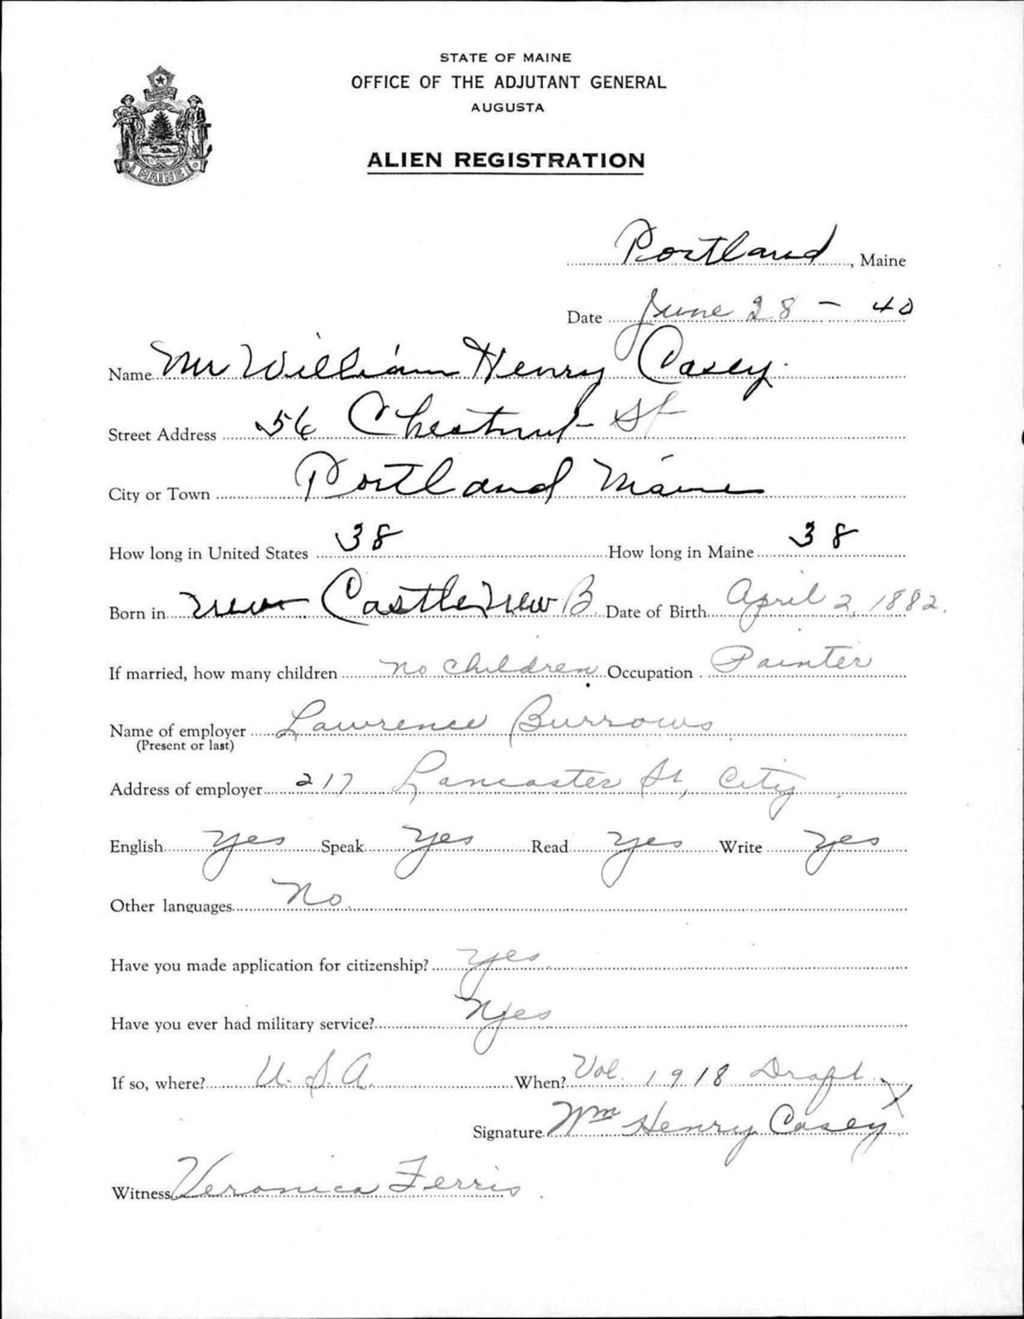 STATE OF MAINE
OFFICE OF THE ADJUTANT GENERAL
AUGUSTA
ALIEN REGISTRATION
MAINE
Portland, Maine
Date June 28 - 40
Name Mr William Henry Casey.
Street Address 56 Chestnut St
City or Town Portland Maine
How long in United States 38 How long in Maine 38
Born in New Castle New B Date of Birth April 2, 1882.
If married, how many children no children Occupation Painter
Name of employer Lawrence Burrows
(Present or last)
Address of employer 217 Lancaster St, City
English yes Speak yes Read yes Write yes
Other languages No
Have you made application for citizenship? yes
Have you ever had military service? yes
If so, where? U. S. A. When? Vol. 1918 Draft X
Signature Wm Henry Casey
Witness Veronica Ferris